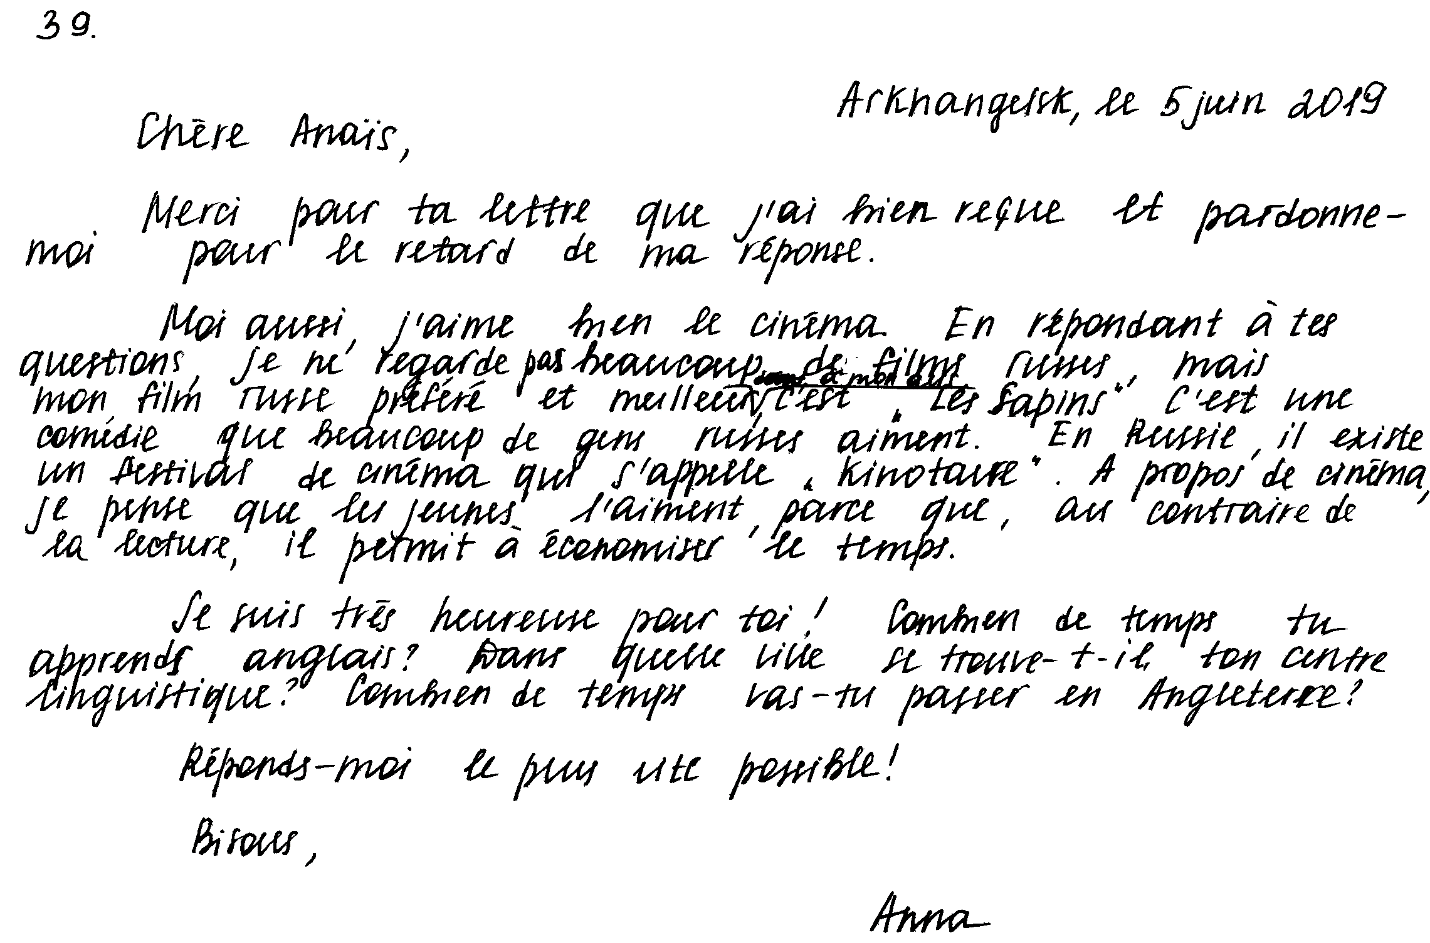 39.
Arkhangelsk, le 5 juin 2019
Chère Anaïs,
Merci pour ta lettre que j'ai bien reçue et pardonne-
moi pour le retard de ma réponse.
Moi aussi, j'aime bien le cinéma. En répondant à tes
questions, je ne regarde pas beaucoup de films russes, mais
mon film russe préféré et meilleur, c'est „Les Sapins". C'est une
comédie que beaucoup de gens russes aiment. En Russie, il existe
un festival de cinéma qui s'appelle „Kinotavre". A propos de cinéma,
je pense que les jeunes l'aiment, parce que, au contraire de
la lecture, il permit à économiser le temps.
Je suis très heureuse pour toi! Combien de temps tu
apprends anglais? Dans quelle ville se trouve-t-il, ton centre
linguistique? Combien de temps vas-tu passer en Angleterre?
Réponds-moi le plus vite possible!
Bisous,
Anna